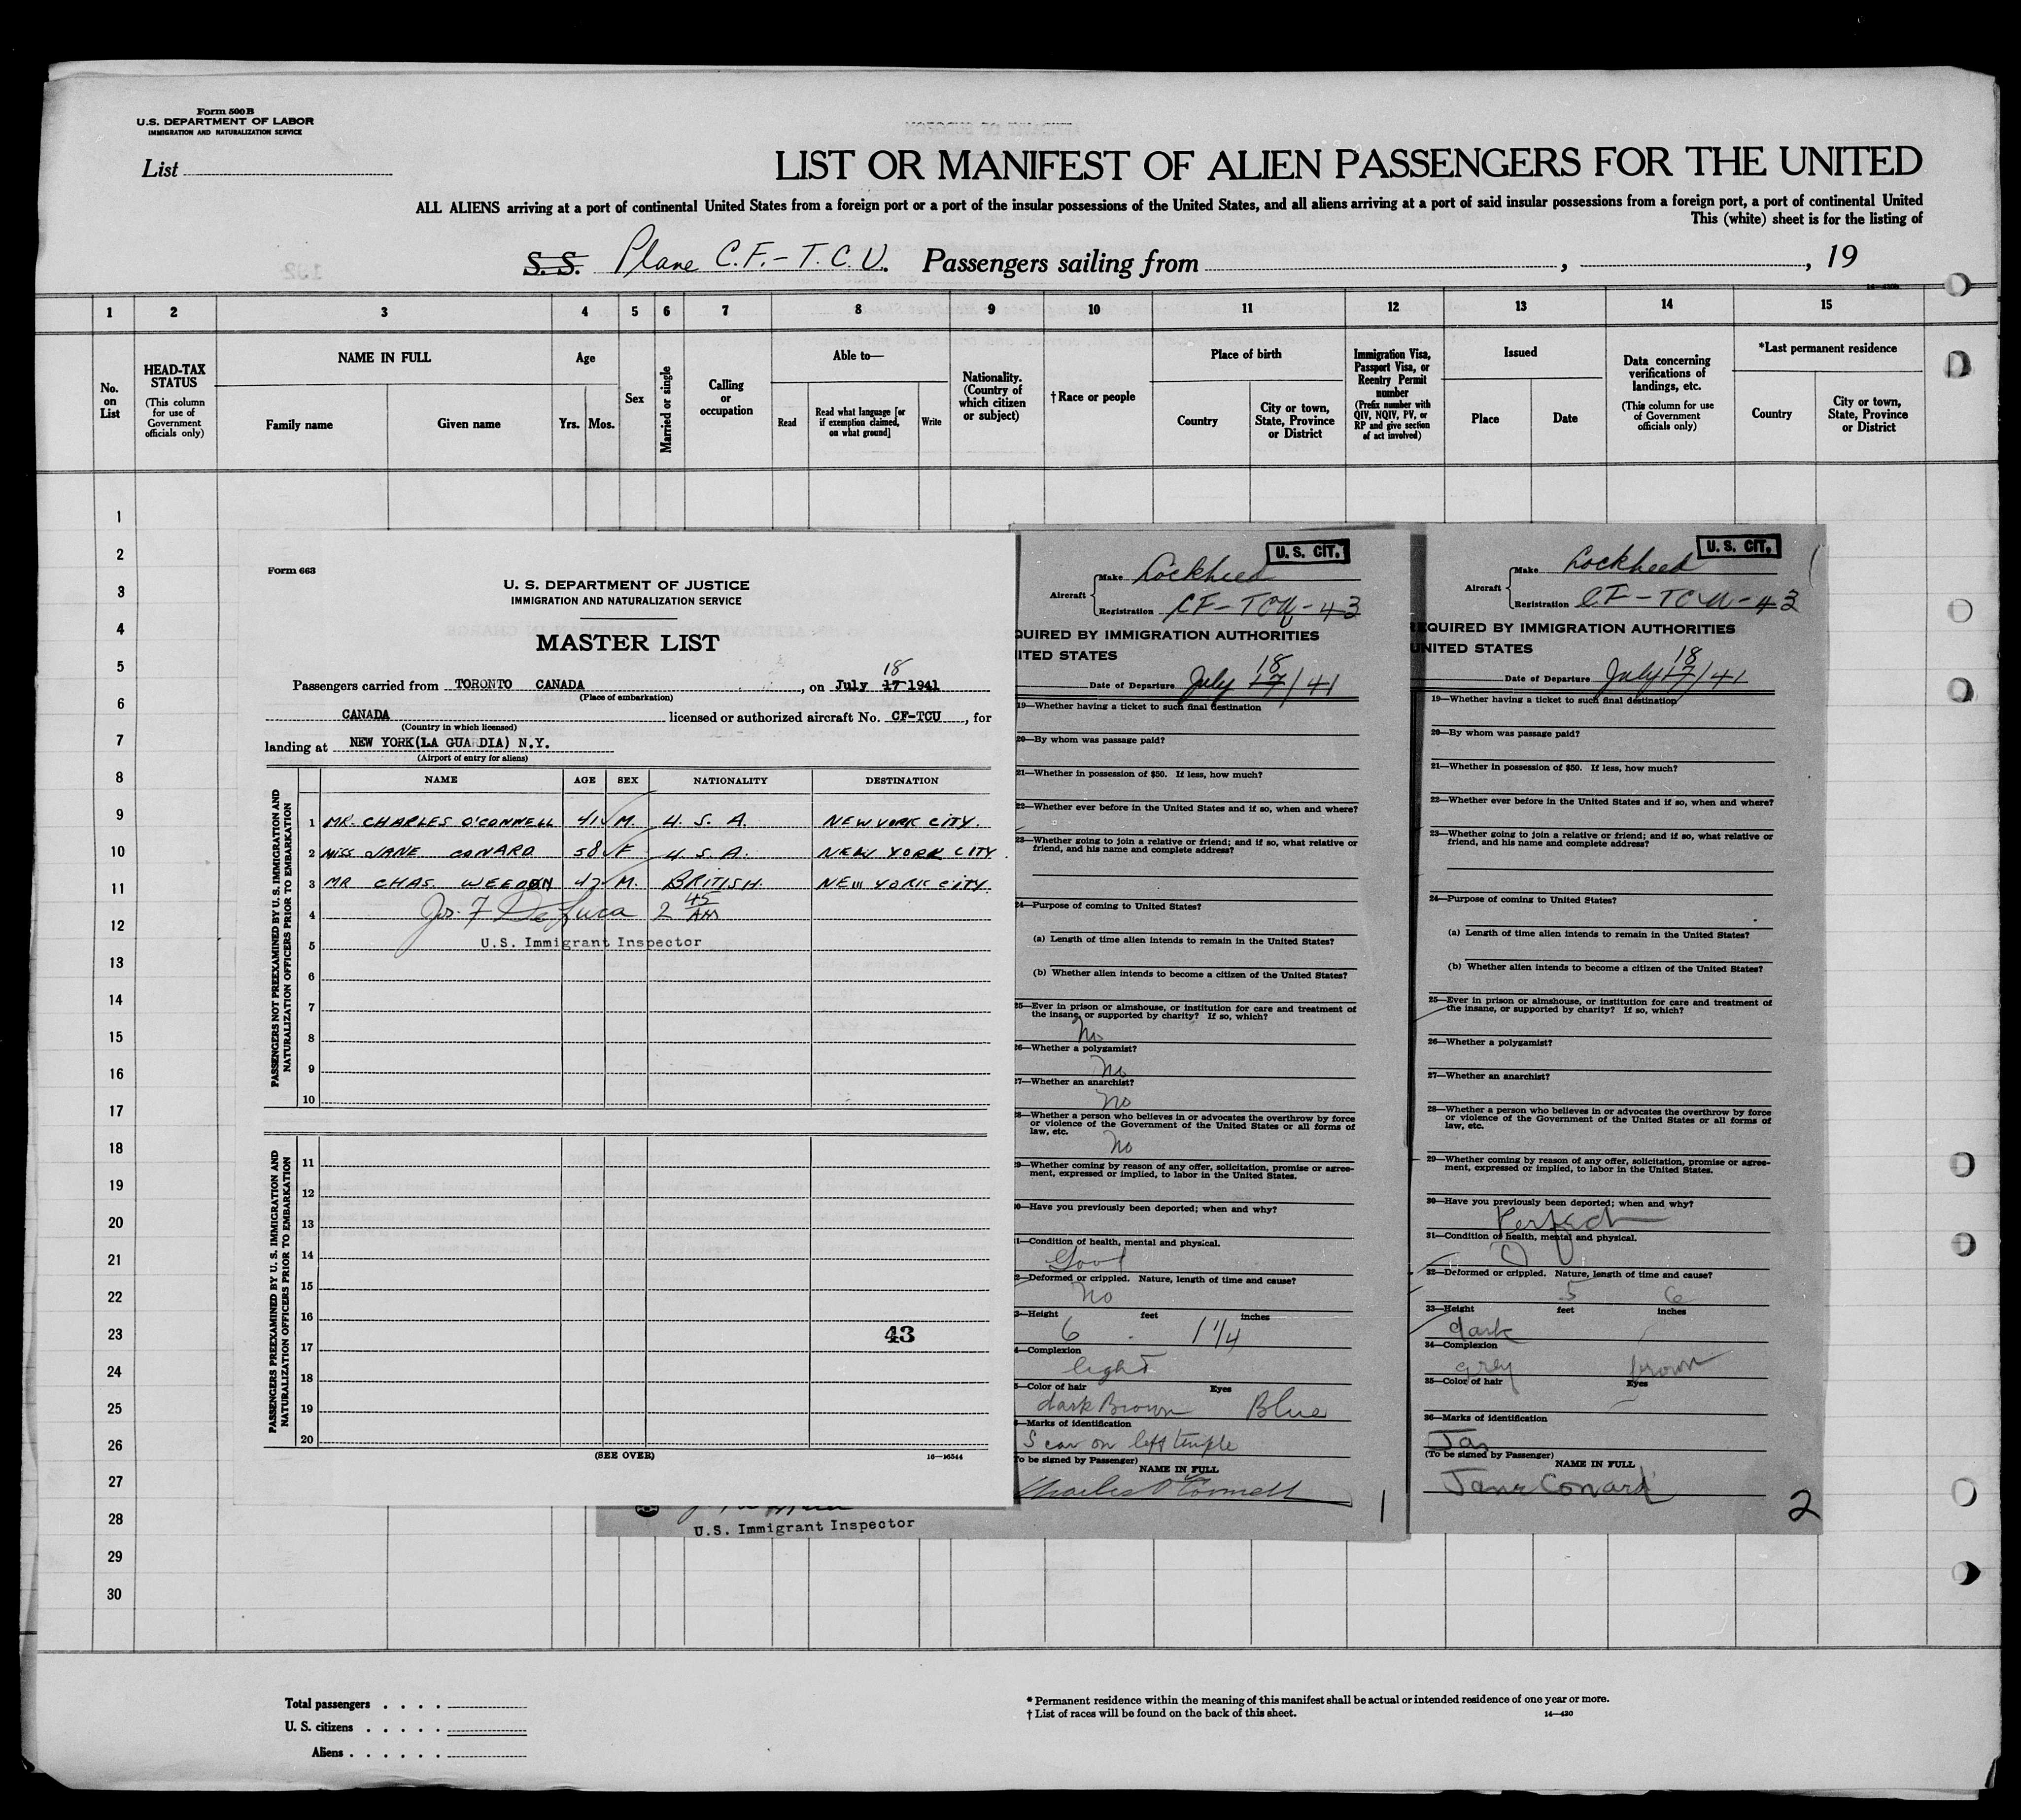 Form 500 B
U.S. DEPARTMENT OF LABOR
IMMIGRATION AND NATURALIZATION SERVICE
List
LIST OR MANIFEST OF ALIEN PASSENGERS FOR THE UNITED
ALL ALIENS arriving at a port of continental United States from a foreign port or a port of the insular possessions of the United States, and all aliens arriving at a port of said insular possessions from a foreign port, a port of continental United
This (white) sheet is for the listing of
S. S. Plane C.F.-T.C.U. Passengers sailing from , , 19
1 2 3 4 5 6 7 8 9 10 11 12 13 14 15
No. on List
HEAD-TAX STATUS
(This column for use of Government officials only)
NAME IN FULL
Family name Given name
Age
Yrs. Mos.
Sex
Married or single
Calling or occupation
Able to—
Read
Read what language [or if exemption claimed, on what ground]
Write
Nationality. (Country of which citizen or subject)
†Race or people
Place of birth
Country
City or town, State, Province or District
Immigration Visa, Passport Visa, or Reentry Permit number
(Prefix number with QIV, NQIV, PV, or RP and give section of act involved)
Issued
Place Date
Data concerning verifications of landings, etc.
(This column for use of Government officials only)
*Last permanent residence
Country
City or town, State, Province or District
1
2
3
4
5
6
7
8
9
10
11
12
13
14
15
16
17
18
19
20
21
22
23
24
25
26
27
28
29
30
Form 663
U. S. DEPARTMENT OF JUSTICE
IMMIGRATION AND NATURALIZATION SERVICE
MASTER LIST
18
Passengers carried from TORONTO CANADA , on July 17 1941
(Place of embarkation)
CANADA licensed or authorized aircraft No. CF-TCU , for
(Country in which licensed)
landing at NEW YORK(LA GUARDIA) N.Y.
(Airport of entry for aliens)
NAME AGE SEX NATIONALITY DESTINATION
PASSENGERS NOT PREEXAMINED BY U. S. IMMIGRATION AND NATURALIZATION OFFICERS PRIOR TO EMBARKATION
1 MR. CHARLES O'CONNELL 41 M. U. S. A. NEW YORK CITY.
2 MISS JANE CONARD 58 F U. S. A. NEW YORK CITY
3 MR CHAS. WEEDON 47 M. BRITISH. NEW YORK CITY.
4 2 45 AM
5 U.S. Immigrant Inspector
6
7
8
9
10
PASSENGERS PREEXAMINED BY U. S. IMMIGRATION AND NATURALIZATION OFFICERS PRIOR TO EMBARKATION
11
12
13
14
15
16
17 43
18
19
20
(SEE OVER) 16—16544
U.S. Immigrant Inspector
U. S. CIT.
Aircraft
Make Lockheed
Registration CF-TCU-43
QUIRED BY IMMIGRATION AUTHORITIES
ITED STATES
18
Date of Departure July 17/41
19—Whether having a ticket to such final destination
20—By whom was passage paid?
21—Whether in possession of $50. If less, how much?
22—Whether ever before in the United States and if so, when and where?
23—Whether going to join a relative or friend; and if so, what relative or friend, and his name and complete address?
24—Purpose of coming to United States?
(a) Length of time alien intends to remain in the United States?
(b) Whether alien intends to become a citizen of the United States?
25—Ever in prison or almshouse, or institution for care and treatment of the insane, or supported by charity? If so, which?
No
26—Whether a polygamist?
No
27—Whether an anarchist?
No
28—Whether a person who believes in or advocates the overthrow by force or violence of the Government of the United States or all forms of law, etc.
No
29—Whether coming by reason of any offer, solicitation, promise or agreement, expressed or implied, to labor in the United States.
30—Have you previously been deported; when and why?
31—Condition of health, mental and physical.
Good
32—Deformed or crippled. Nature, length of time and cause?
No
33—Height feet inches
6 1 1/4
34—Complexion
light
35—Color of hair Eyes
dark Brown Blue
36—Marks of identification
Scar on left temple
(To be signed by Passenger)
NAME IN FULL
Charles O'Connell
1
U. S. CIT.
Aircraft
Make Lockheed
Registration CF-TCU-43
REQUIRED BY IMMIGRATION AUTHORITIES
UNITED STATES
18
Date of Departure July 17/41
19—Whether having a ticket to such final destination
20—By whom was passage paid?
21—Whether in possession of $50. If less, how much?
22—Whether ever before in the United States and if so, when and where?
23—Whether going to join a relative or friend; and if so, what relative or friend, and his name and complete address?
24—Purpose of coming to United States?
(a) Length of time alien intends to remain in the United States?
(b) Whether alien intends to become a citizen of the United States?
25—Ever in prison or almshouse, or institution for care and treatment of the insane, or supported by charity? If so, which?
26—Whether a polygamist?
27—Whether an anarchist?
28—Whether a person who believes in or advocates the overthrow by force or violence of the Government of the United States or all forms of law, etc.
29—Whether coming by reason of any offer, solicitation, promise or agreement, expressed or implied, to labor in the United States.
30—Have you previously been deported; when and why?
Perfect
31—Condition of health, mental and physical.
32—Deformed or crippled. Nature, length of time and cause?
5 6
33—Height feet inches
dark
34—Complexion
grey brown
35—Color of hair Eyes
36—Marks of identification
Ja
(To be signed by Passenger)
NAME IN FULL
Jane Conard
2
Total passengers . . . .
U. S. citizens . . . . .
Aliens . . . . . .
* Permanent residence within the meaning of this manifest shall be actual or intended residence of one year or more.
† List of races will be found on the back of this sheet. 14—430